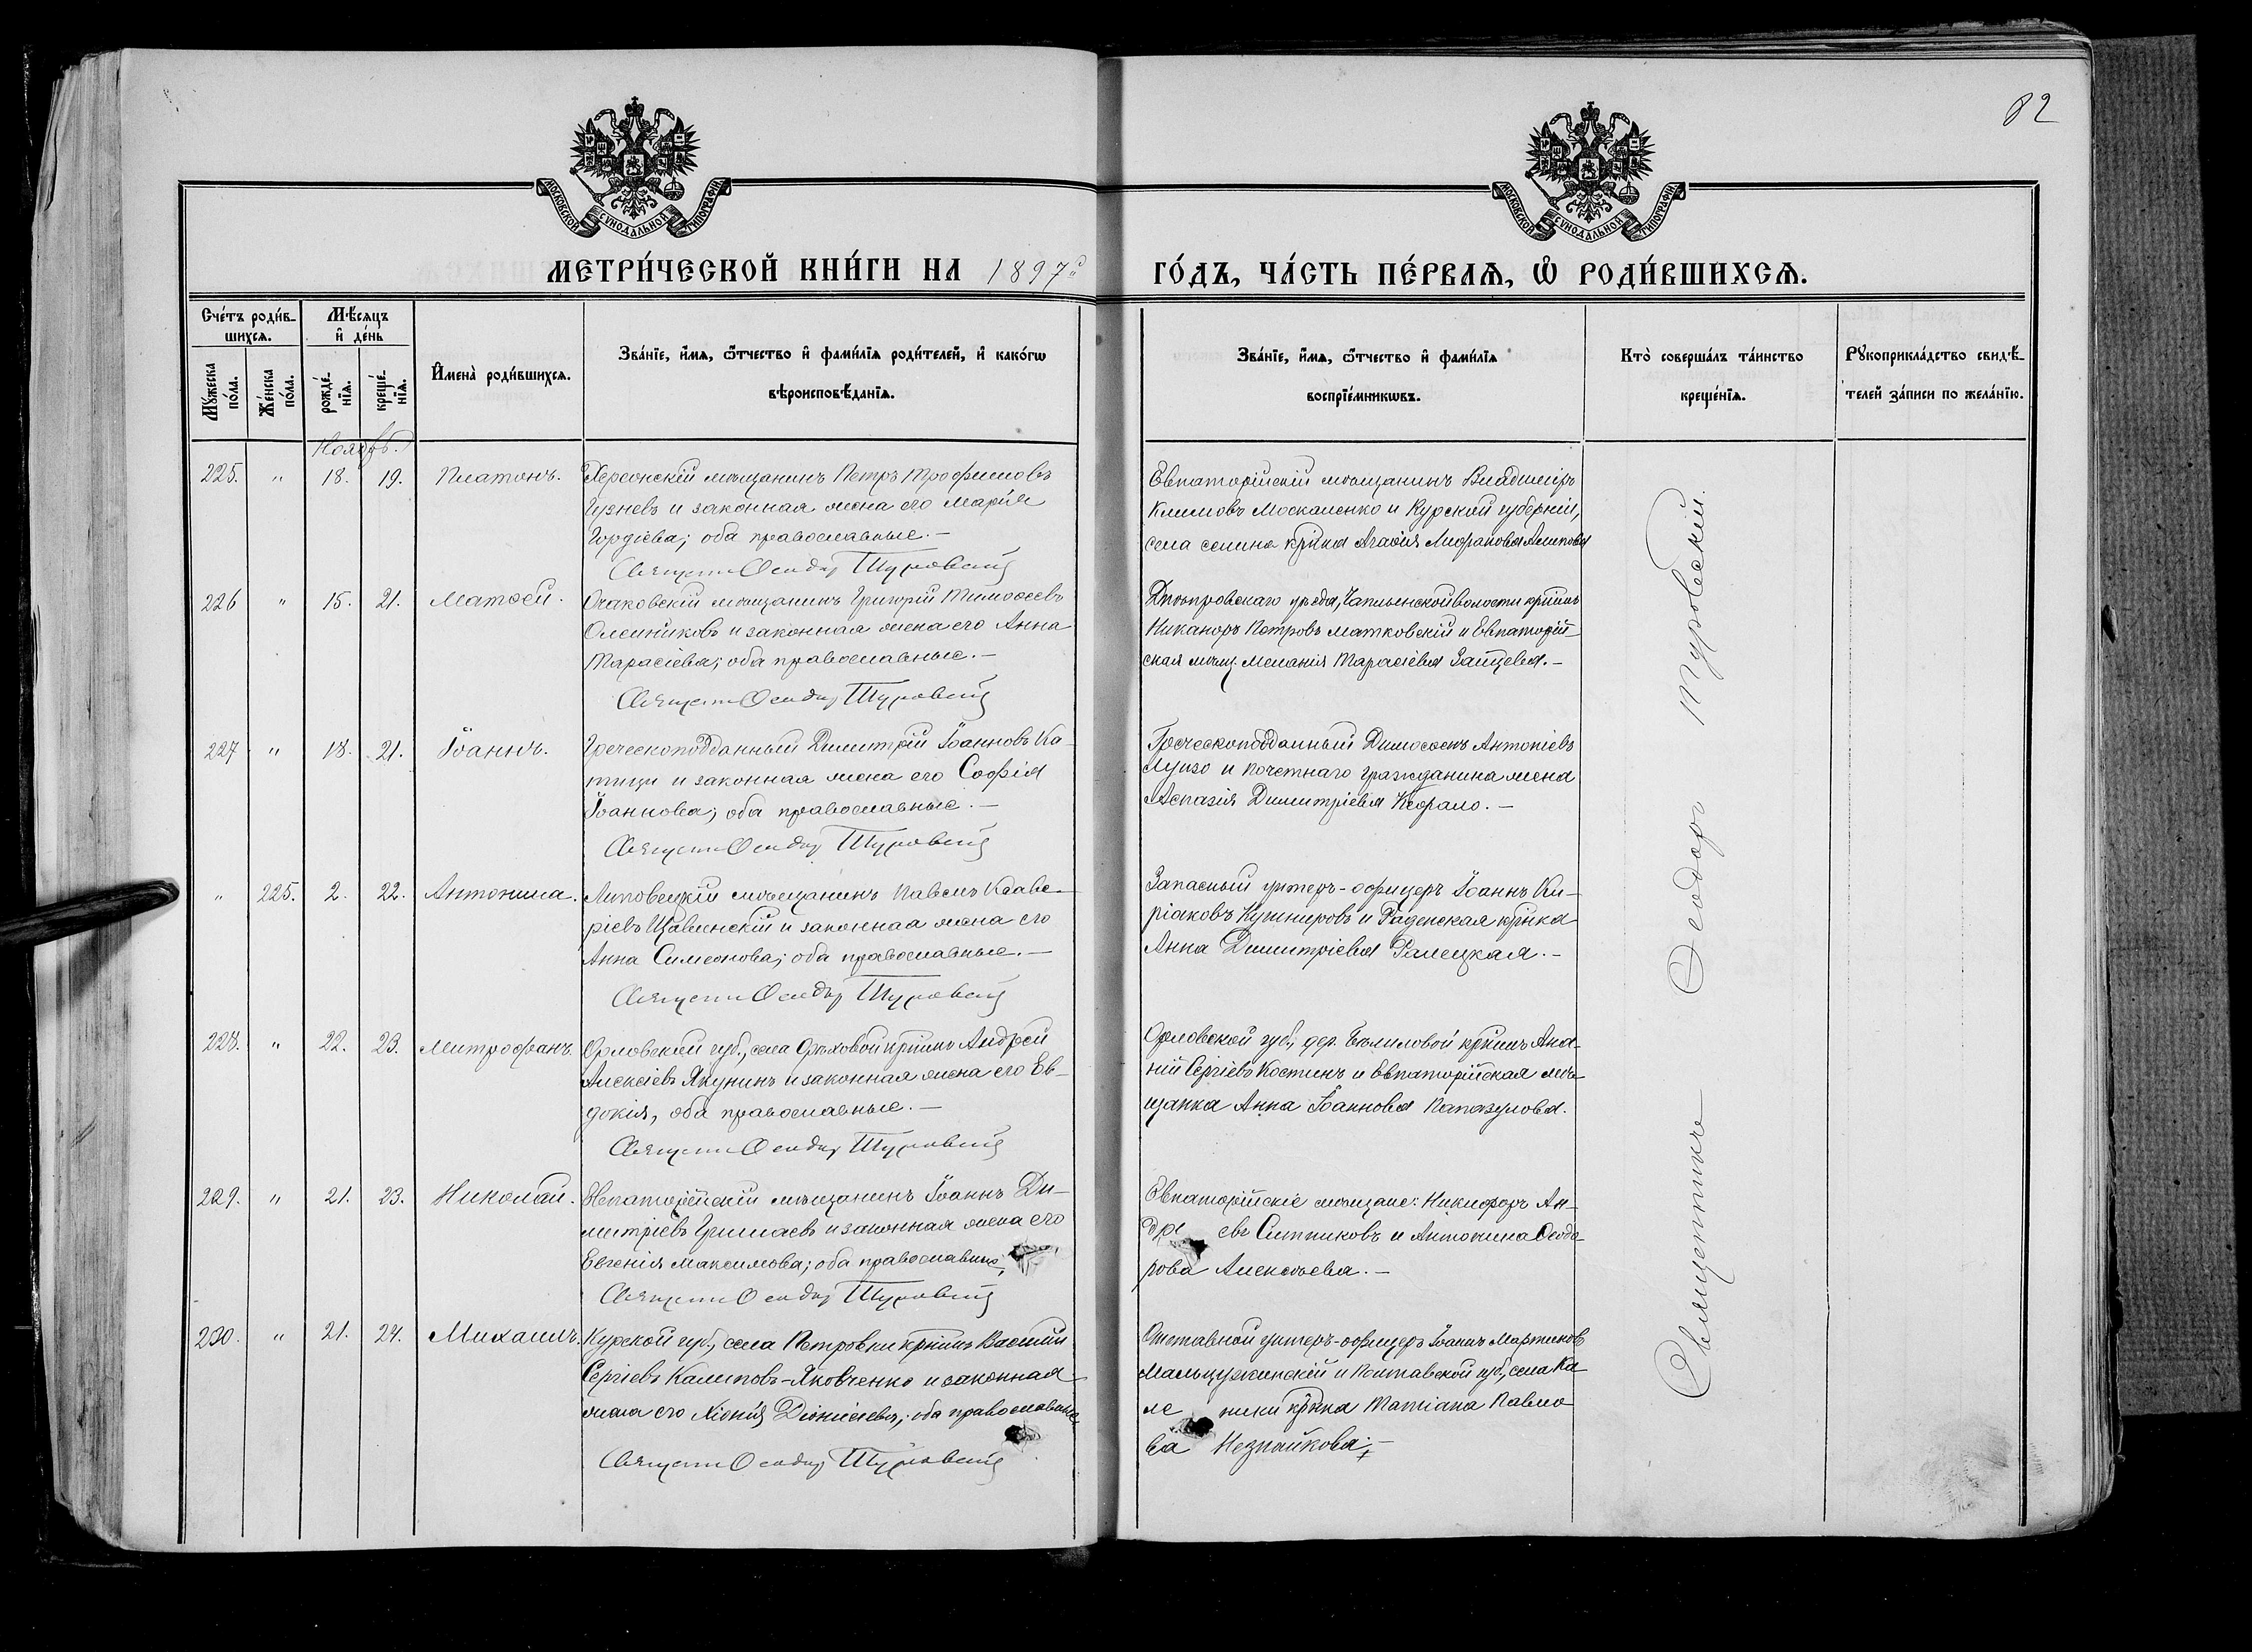 82
МОСКОВСКОЙ СѴНОДАЛЬНОЙ ТИПОГРАФІИ
МОСКОВСКОЙ СѴНОДАЛЬНОЙ ТИПОГРАФІИ
МЕТРИ́ЧЕСКОЙ КНИ́ГИ НА 1897й ГО́ДЪ, ЧА́СТЬ ПЕ́РВАѦ, Ѡ РОДИ́ВШИХСѦ.
Сче́тъ роди́в-
шихсѧ.
Мꙋ́жеска по́ла.
Же́нска по́ла.
Мѣ́сѧцъ
и҆ де́нь
рожде́-
нїѧ.
креще́-
нїѧ.
И҆мена̀ роди́вшихсѧ.
Зва́нїе, и҆́мѧ, ѻ҆́тчество и҆ фами́лїѧ роди́телей, и҆ како́гѡ
вѣроисповѣ́данїѧ.
Зва́нїе, и҆́мѧ, ѻ҆́тчество и҆ фами́лїѧ
воспрїе́мникѡвъ.
Кто̀ соверша́лъ та́инство
креще́нїѧ.
Рꙋкоприкла́дство свидѣ́-
телей за́писи по жела́нїю.
Ноябрь.
225. " 18. 19. Платонъ.
Херсонскій мѣщанинъ Петръ Трофимовъ
Гузневъ и законная жена его Марія
Гордіева; оба православные.—
Священн Ѳеодор Туровскій
Евпаторійскій мѣщанинъ Владиміръ
Климовъ Москаленко и Курской губерніи,
села крнка Агаѳія
226 " 15. 21. Матѳей.
Очаковскій мѣщанинъ Григорій Тимоѳеевъ
Олейниковъ и законная жена его Анна
Тарасіева; оба православные.—
Священн Ѳеодор Туровскій
Днѣпровскаго уѣзда, Чаплинской волости крнинъ
Никаноръ Петровъ Матковскій и Евпаторій-
ская мѣщ. Меланія Тарасіева Зайцева.—
227 " 18. 21. Іоаннъ.
Греческоподданный Димитрій Іоанновъ Ка-
тици и законная жена его Софія
Іоаннова; оба православные.—
Священн Ѳеодор Туровскій
Греческоподданный Димосѳенъ Антоніевъ
Лунзо и почетнаго гражданина жена
Аспазія Димитріева Кефало.—
" 225. 2. 22. Антонина.
Липовецкій мѣщанинъ Павелъ Ксаве-
ріевъ Щавинскій и законная жена его
Анна Симеонова; оба православные.—
Священн Ѳеодор Туровскій
Запасный унтеръ-офицеръ Іоаннъ Ки-
ріаковъ Кушнировъ и Раденская крнка
Анна Димитріева Галецкая.—
228. " 22. 23. Митрофанъ.
Орловской губ., села Орѣховой крнинъ Андрей
Алексіевъ Якунинъ и законная жена его Ев-
докія, оба православные.—
Священн Ѳеодор Туровскій
Орловской губ., дер. крнинъ Ана-
ній Сергіевъ Костинъ и Евпаторійская мѣ-
щанка Анна Іоаннова Папазулова.
229. " 21. 23. Николай.
Евпаторійскій мѣщанинъ Іоаннъ Ди-
митріевъ Гришаевъ и законная жена его
Евгенія Максимова; оба православные.
Священн Ѳеодор Туровскій
Евпаторійскіе мѣщане: Никифоръ Ан-
дре евъ Ситниковъ и Антонина Ѳеодо-
рова Алексѣева.—
230. " 21. 24. Михаилъ.
Курской губ., села Петровки крнинъ Василій
Сергіевъ Калиповъ-Яковченко и законная
жена его Хіонія Діонисіева; оба православные
Священн Ѳеодор Туровскій
Отставной унтеръ-офицеръ Іоаннъ Мартиновъ
Мальцужинскій и Полтавской губ., села Ка
ле ники крнка Татіана Павло
ва Незнайкова.—
Священникъ Ѳеодоръ Туровскій.